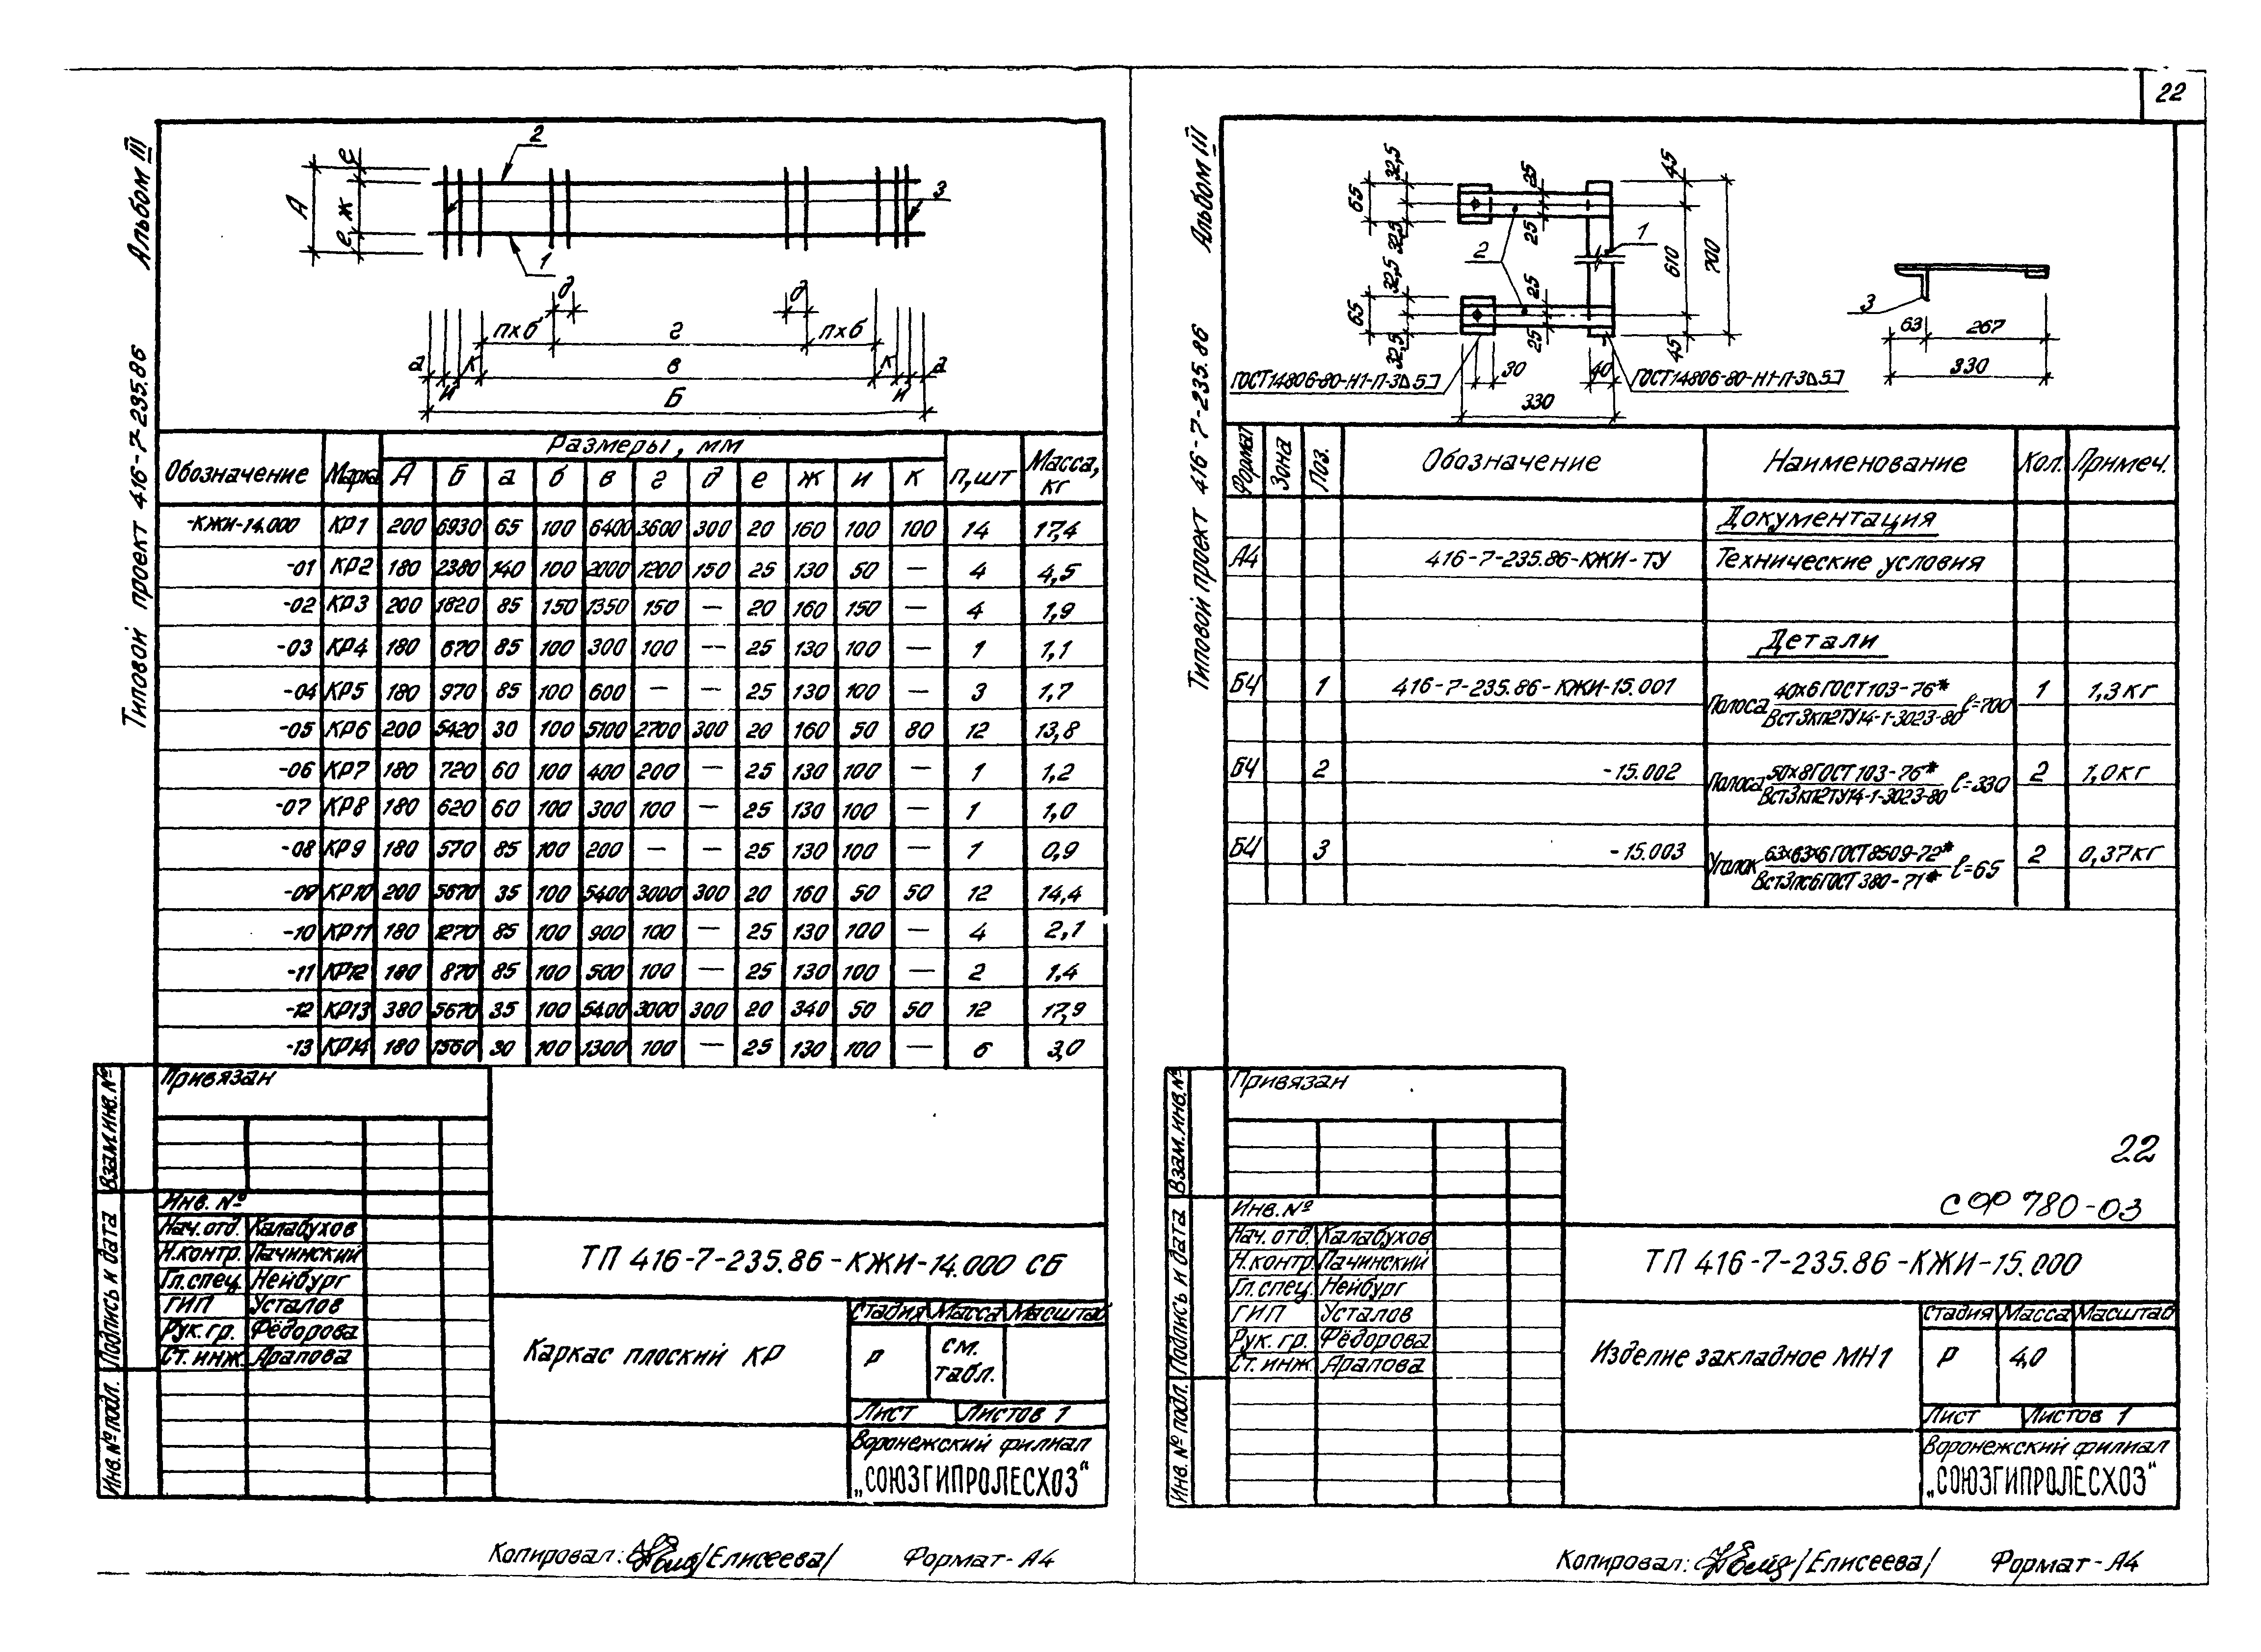 22
Альбом III
Типовой проект 416-7-235.86
2
3
1
А
е
ж
е
д
д
п×б
г
п×б
а
к
в
к
а
и
и
Б
Обозначение Марка Размеры, мм п, шт Масса, кг
А Б а б в г д е ж и к
-КЖИ-14.000 КР1 200 6930 65 100 6400 3600 300 20 160 100 100 14 17,4
-01 КР2 180 2380 140 100 2000 1200 150 25 130 50 — 4 4,5
-02 КР3 200 1820 85 150 1350 150 — 20 160 150 — 4 1,9
-03 КР4 180 670 85 100 300 100 — 25 130 100 — 1 1,1
-04 КР5 180 970 85 100 600 — — 25 130 100 — 3 1,7
-05 КР6 200 5420 30 100 5100 2700 300 20 160 50 80 12 13,8
-06 КР7 180 720 60 100 400 200 — 25 130 100 — 1 1,2
-07 КР8 180 620 60 100 300 100 — 25 130 100 — 1 1,0
-08 КР9 180 570 85 100 200 — — 25 130 100 — 1 0,9
-09 КР10 200 5670 35 100 5400 3000 300 20 160 50 50 12 14,4
-10 КР11 180 1270 85 100 900 100 — 25 130 100 — 4 2,1
-11 КР12 180 870 85 100 500 100 — 25 130 100 — 2 1,4
-12 КР13 380 5670 35 100 5400 3000 300 20 340 50 50 12 17,9
-13 КР14 180 1560 30 100 1300 100 — 25 130 100 — 6 3,0
Привязан
Инв. №
Взам.инв.№
Подпись и дата
Инв.№ подл.
Нач.отд. Калабухов
Н.контр. Пачинский
Гл.спец. Нейбург
ГИП Усталов
Рук.гр. Фёдорова
Ст.инж. Арапова
ТП 416-7-235.86-КЖИ-14.000 СБ
Каркас плоский КР
Стадия Масса Масштаб
Р см. табл.
Лист Листов 1
Воронежский филиал
„СОЮЗГИПРОЛЕСХОЗ“
Копировал: /Елисеева/ Формат-А4
Альбом III
Типовой проект 416-7-235.86
65
32,5
32,5
25
25
45
1
2
610
700
65
32,5
32,5
25
25
45
30
40
330
ГОСТ14806-80-Н1-П-3Δ5
ГОСТ14806-80-Н1-П-3Δ5
3
63
267
330
Формат Зона Поз. Обозначение Наименование Кол. Примеч.
Документация
А4 416-7-235.86-КЖИ-ТУ Технические условия
Детали
БЧ 1 416-7-235.86-КЖИ-15.001 Полоса 40х6 ГОСТ103-76* ℓ=700 1 1,3кг
Вст3кп2ТУ14-1-3023-80
БЧ 2 -15.002 Полоса 50х8 ГОСТ103-76* ℓ=330 2 1,0кг
Вст3кп2ТУ14-1-3023-80
БЧ 3 -15.003 Уголок 63х63х6 ГОСТ8509-72* ℓ=65 2 0,37кг
Вст3пс6 ГОСТ 380-71*
Привязан
22
Инв.№
СФ 780-03
Взам.инв.№
Подпись и дата
Инв.№ подл.
Нач.отд. Калабухов
Н.контр. Пачинский
Гл.спец. Нейбург
ГИП Усталов
Рук.гр. Фёдорова
Ст.инж. Арапова
ТП 416-7-235.86-КЖИ-15.000
Изделие закладное МН1
Стадия Масса Масштаб
Р 4,0
Лист Листов 1
Воронежский филиал
„СОЮЗГИПРОЛЕСХОЗ“
Копировал: /Елисеева/ Формат-А4